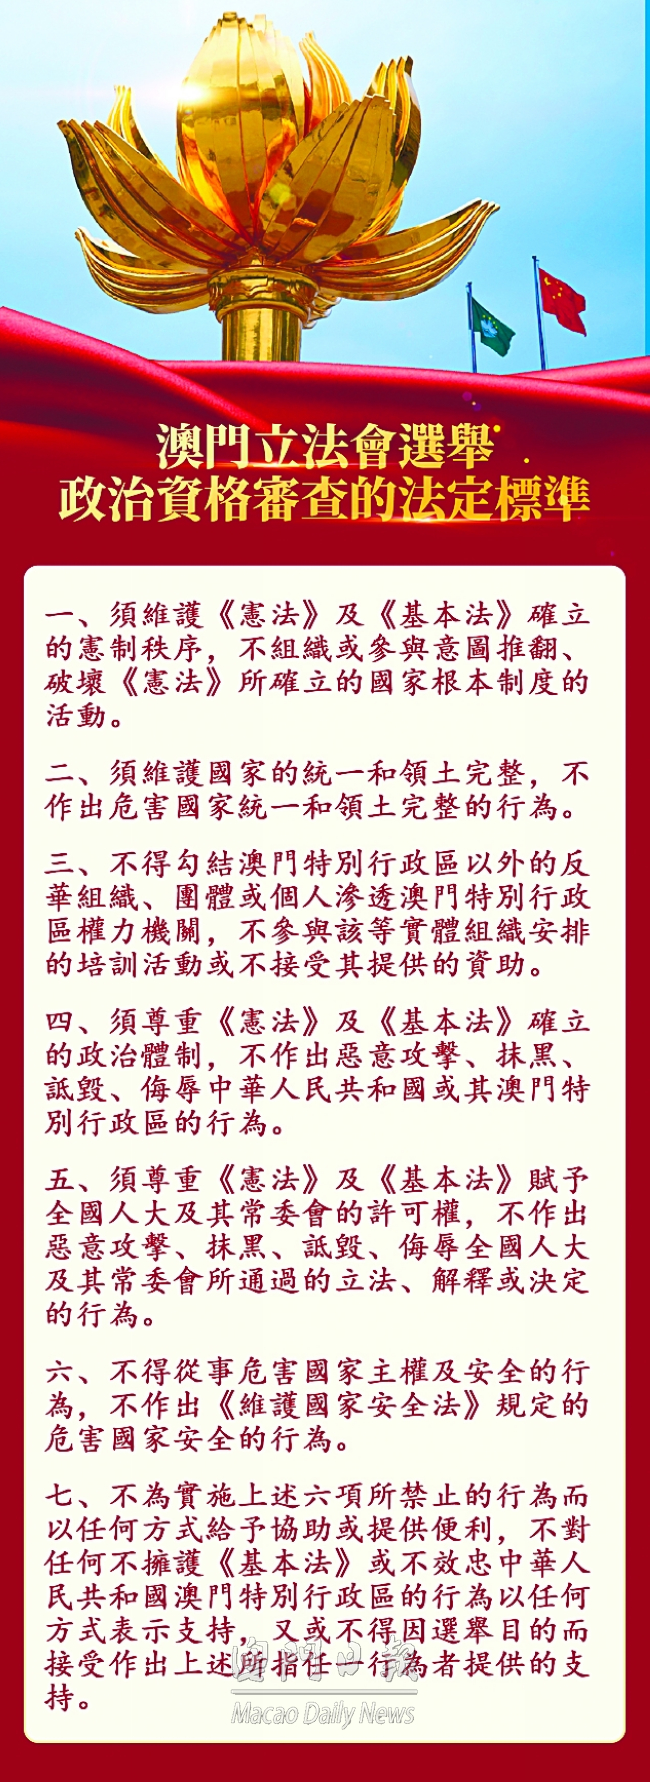 澳門立法會選舉
政治資格審查的法定標準
一、須維護《憲法》及《基本法》確立
的憲制秩序，不組織或參與意圖推翻、
破壞《憲法》所確立的國家根本制度的
活動。
二、須維護國家的統一和領土完整，不
作出危害國家統一和領土完整的行為。
三、不得勾結澳門特別行政區以外的反
華組織、團體或個人滲透澳門特別行政
區權力機關，不參與該等實體組織安排
的培訓活動或不接受其提供的資助。
四、須尊重《憲法》及《基本法》確立
的政治體制，不作出惡意攻擊、抹黑、
詆毀、侮辱中華人民共和國或其澳門特
別行政區的行為。
五、須尊重《憲法》及《基本法》賦予
全國人大及其常委會的許可權，不作出
惡意攻擊、抹黑、詆毀、侮辱全國人大
及其常委會所通過的立法、解釋或決定
的行為。
六、不得從事危害國家主權及安全的行
為，不作出《維護國家安全法》規定的
危害國家安全的行為。
七、不為實施上述六項所禁止的行為而
以任何方式給予協助或提供便利，不對
任何不擁護《基本法》或不效忠中華人
民共和國澳門特別行政區的行為以任何
方式表示支持，又或不得因選舉目的而
接受作出上述所指任一行為者提供的支
持。
澳門日報
Macao Daily News